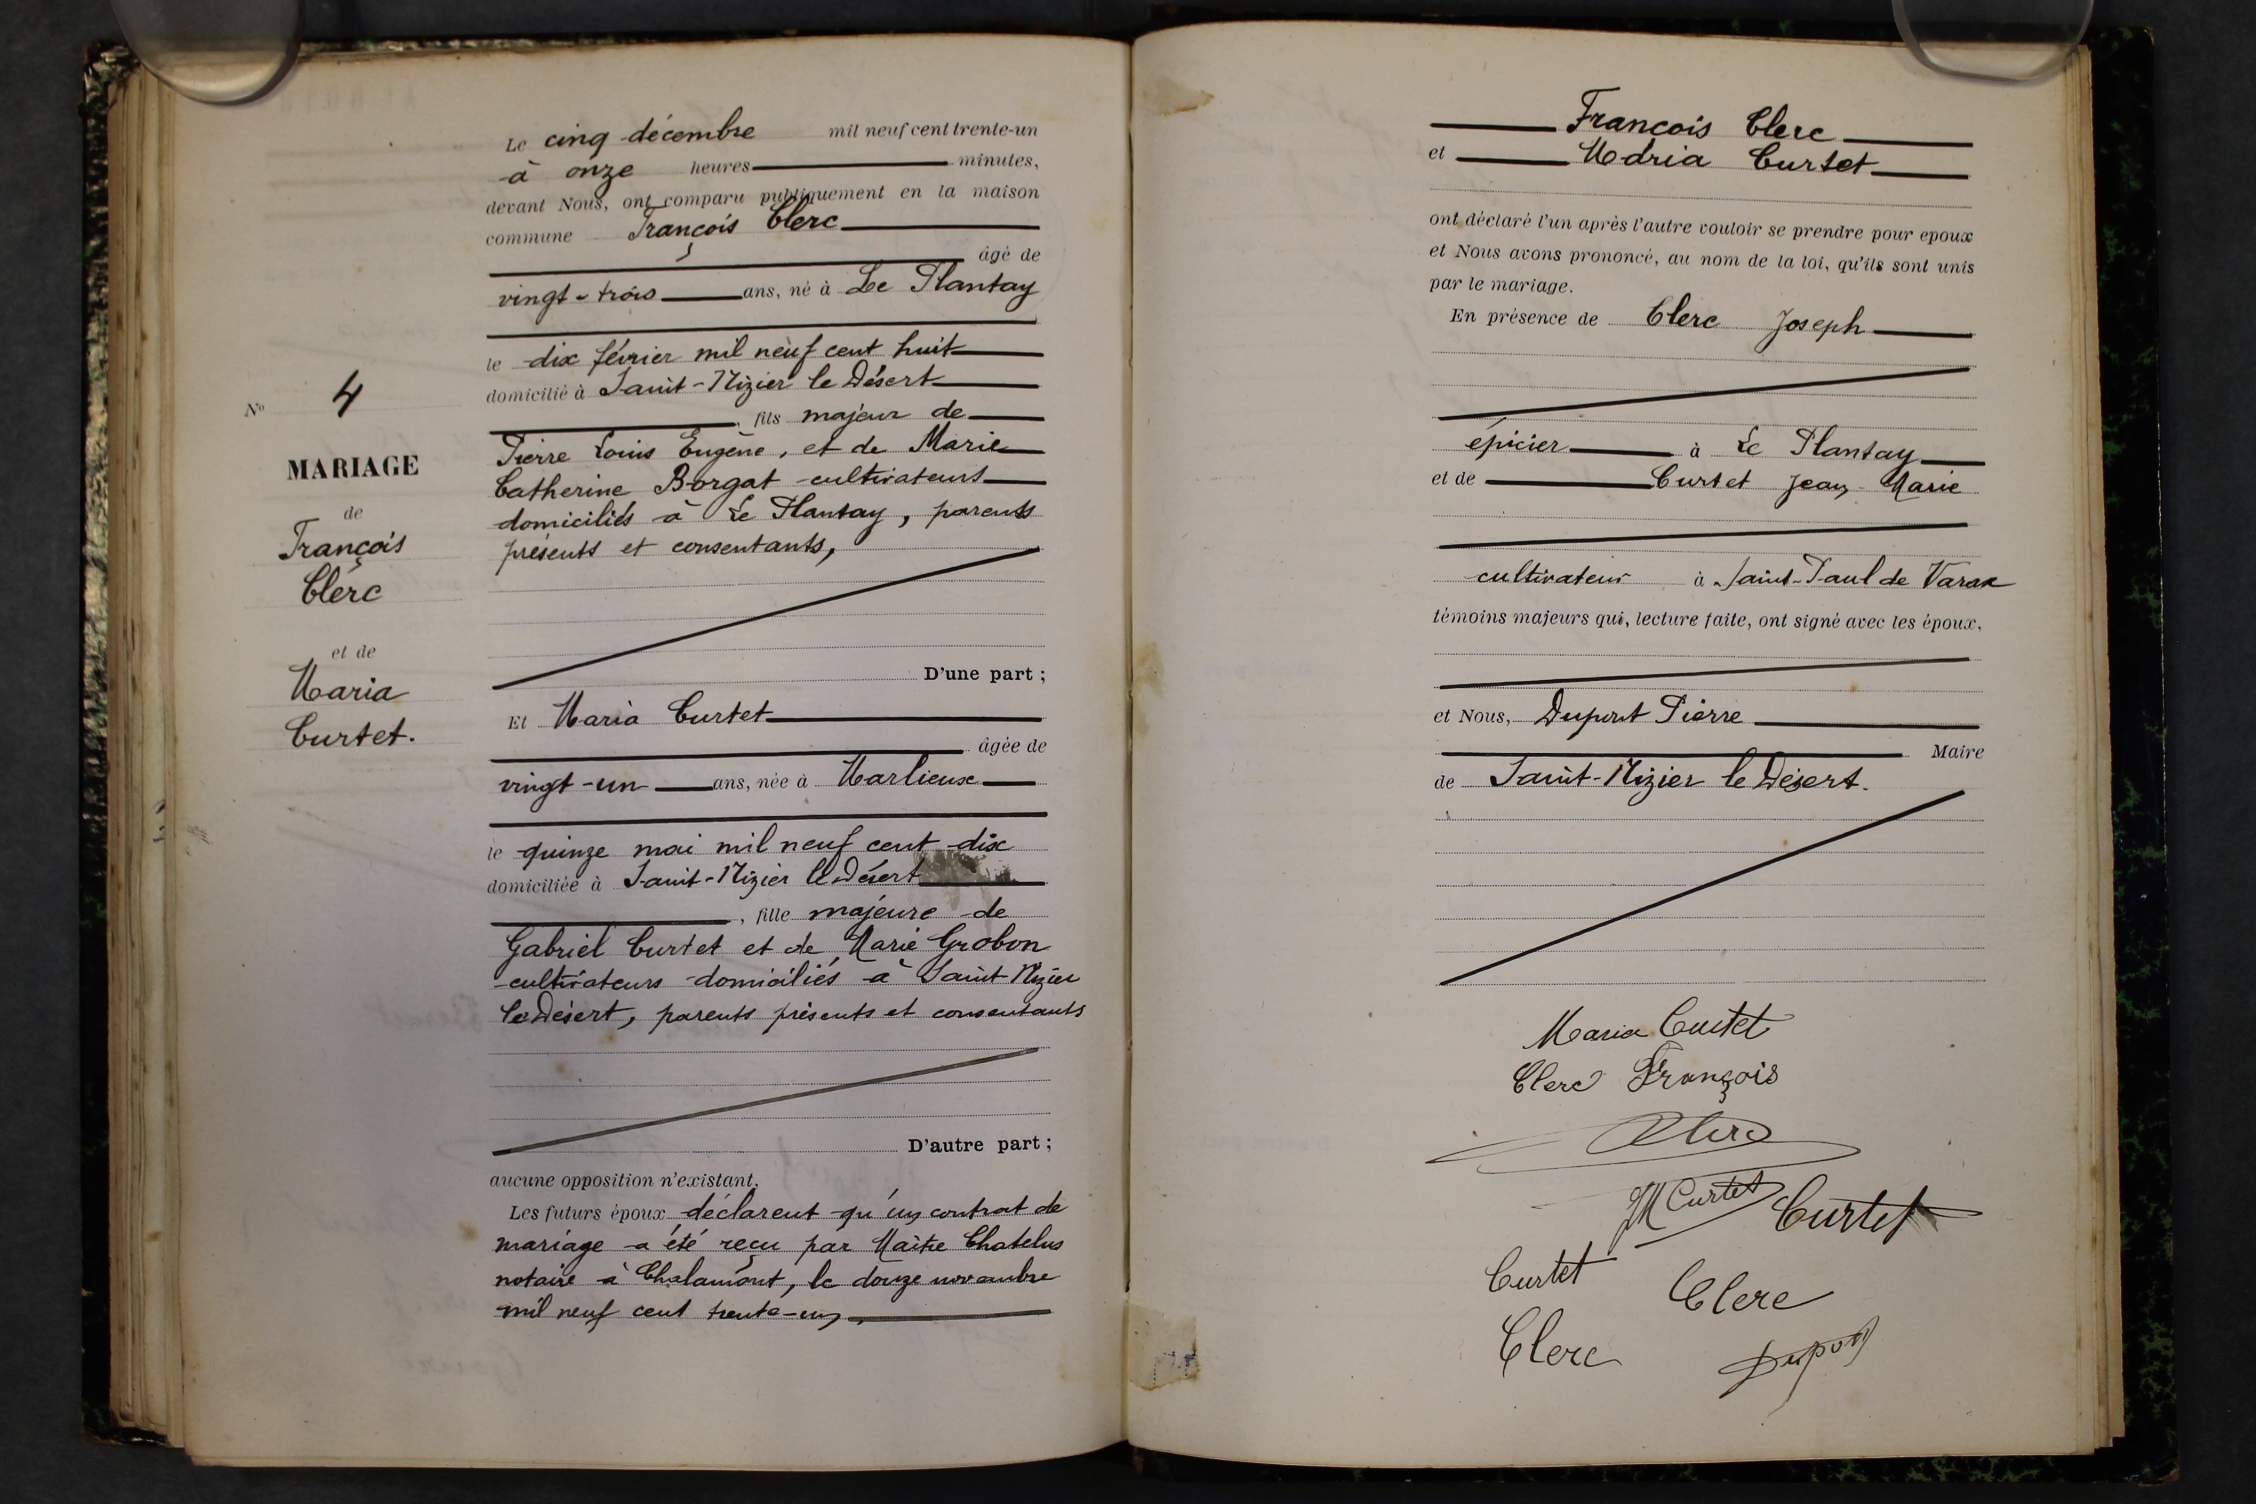 Le cinq décembre mil neuf cent trente-un
à onze heures minutes,
devant Nous, ont comparu publiquement en la maison
commune François Clerc
âgé de
vingt-trois ans, né à Le Plantay
le dix février mil neuf cent huit
domicilié à Saint-Nizier le Désert
, fils majeur de
Pierre Louis Eugène, et de Marie
Catherine Borgat cultivateurs
domiciliés à Le Plantay, parents
présents et consentants,
D'une part ;
Et Maria Curtet
âgée de
vingt-un ans, née à Marlieux
le quinze mai mil neuf cent dix
domiciliée à Saint-Nizier le Désert
, fille majeure de
Gabriel Curtet et de Marie Grobon
cultivateurs domiciliés à Saint Nizier
le Désert, parents présents et consentants
D'autre part ;
aucune opposition n'existant,
Les futurs époux déclarent qu'un contrat de
mariage a été reçu par Maître Chatelus
notaire à Chalamont, le douze novembre
mil neuf cent trente-un,
No 4
MARIAGE
de
François
Clerc
et de
Maria
Curtet.
François Clerc
et Maria Curtet
ont déclaré l'un après l'autre vouloir se prendre pour epoux
et Nous avons prononcé, au nom de la loi, qu'ils sont unis
par le mariage.
En présence de Clerc Joseph
épicier à Le Plantay
et de Curtet Jean-Marie
cultivateur à Saint-Paul de Varax
témoins majeurs qui, lecture faite, ont signé avec les époux,
et Nous, Dupont Pierre
Maire
de Saint-Nizier le Désert.
Maria Curtet
Clerc François
Clerc
JM Curtet Curtet
Curtet Clerc
Clerc Dupont